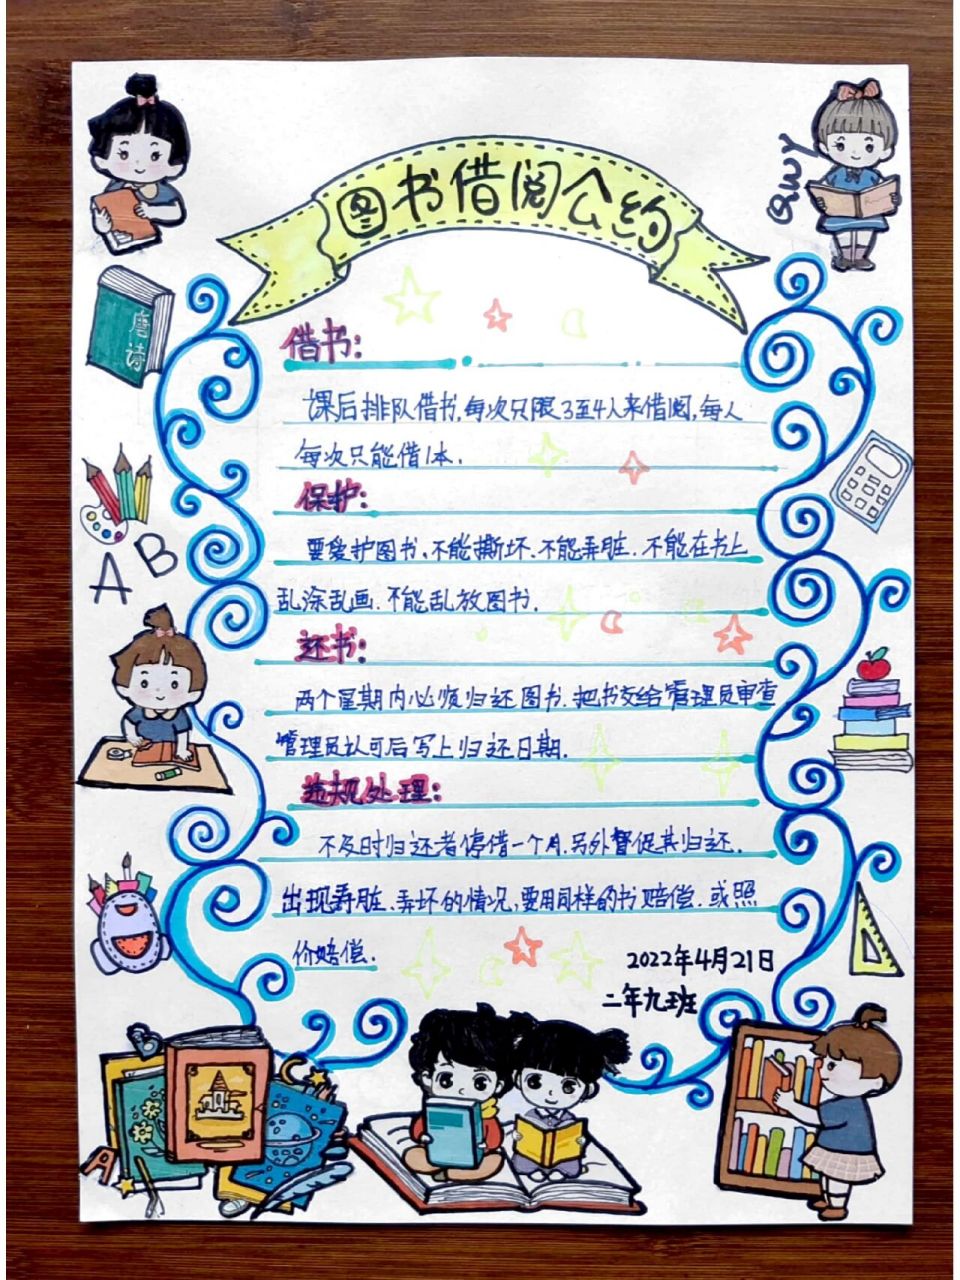 图书借阅公约
QWY
唐诗
借书:
课后排队借书,每次只限3至4人来借阅,每人
每次只能借1本.
保护:
要爱护图书、不能撕坏、不能弄脏、不能在书上
乱涂乱画.不能乱放图书.
AB
还书:
两个星期内必须归还图书.把书交给管理员审查
管理员认可后写上归还日期.
违规处理:
不及时归还者停借一个月.另外督促其归还.
出现弄脏、弄坏的情况,要用同样的书赔偿.或照
价赔偿.
2022年4月21日
二年九班
A